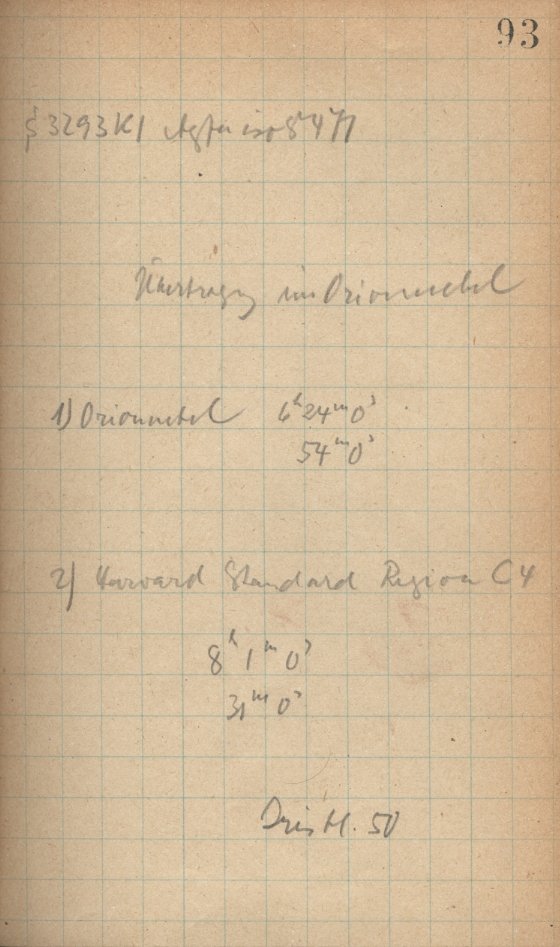 93
§ 3293 K1 Agfa iso 5471
Übertragg im Orionnebel
1) Orionnebel 6ʰ 24ᵐ 0ˢ
54ᵐ 0ˢ
2) Harvard Standard Region C4
8ʰ 1ᵐ 0ˢ
31ᵐ 0ˢ
Iris 50